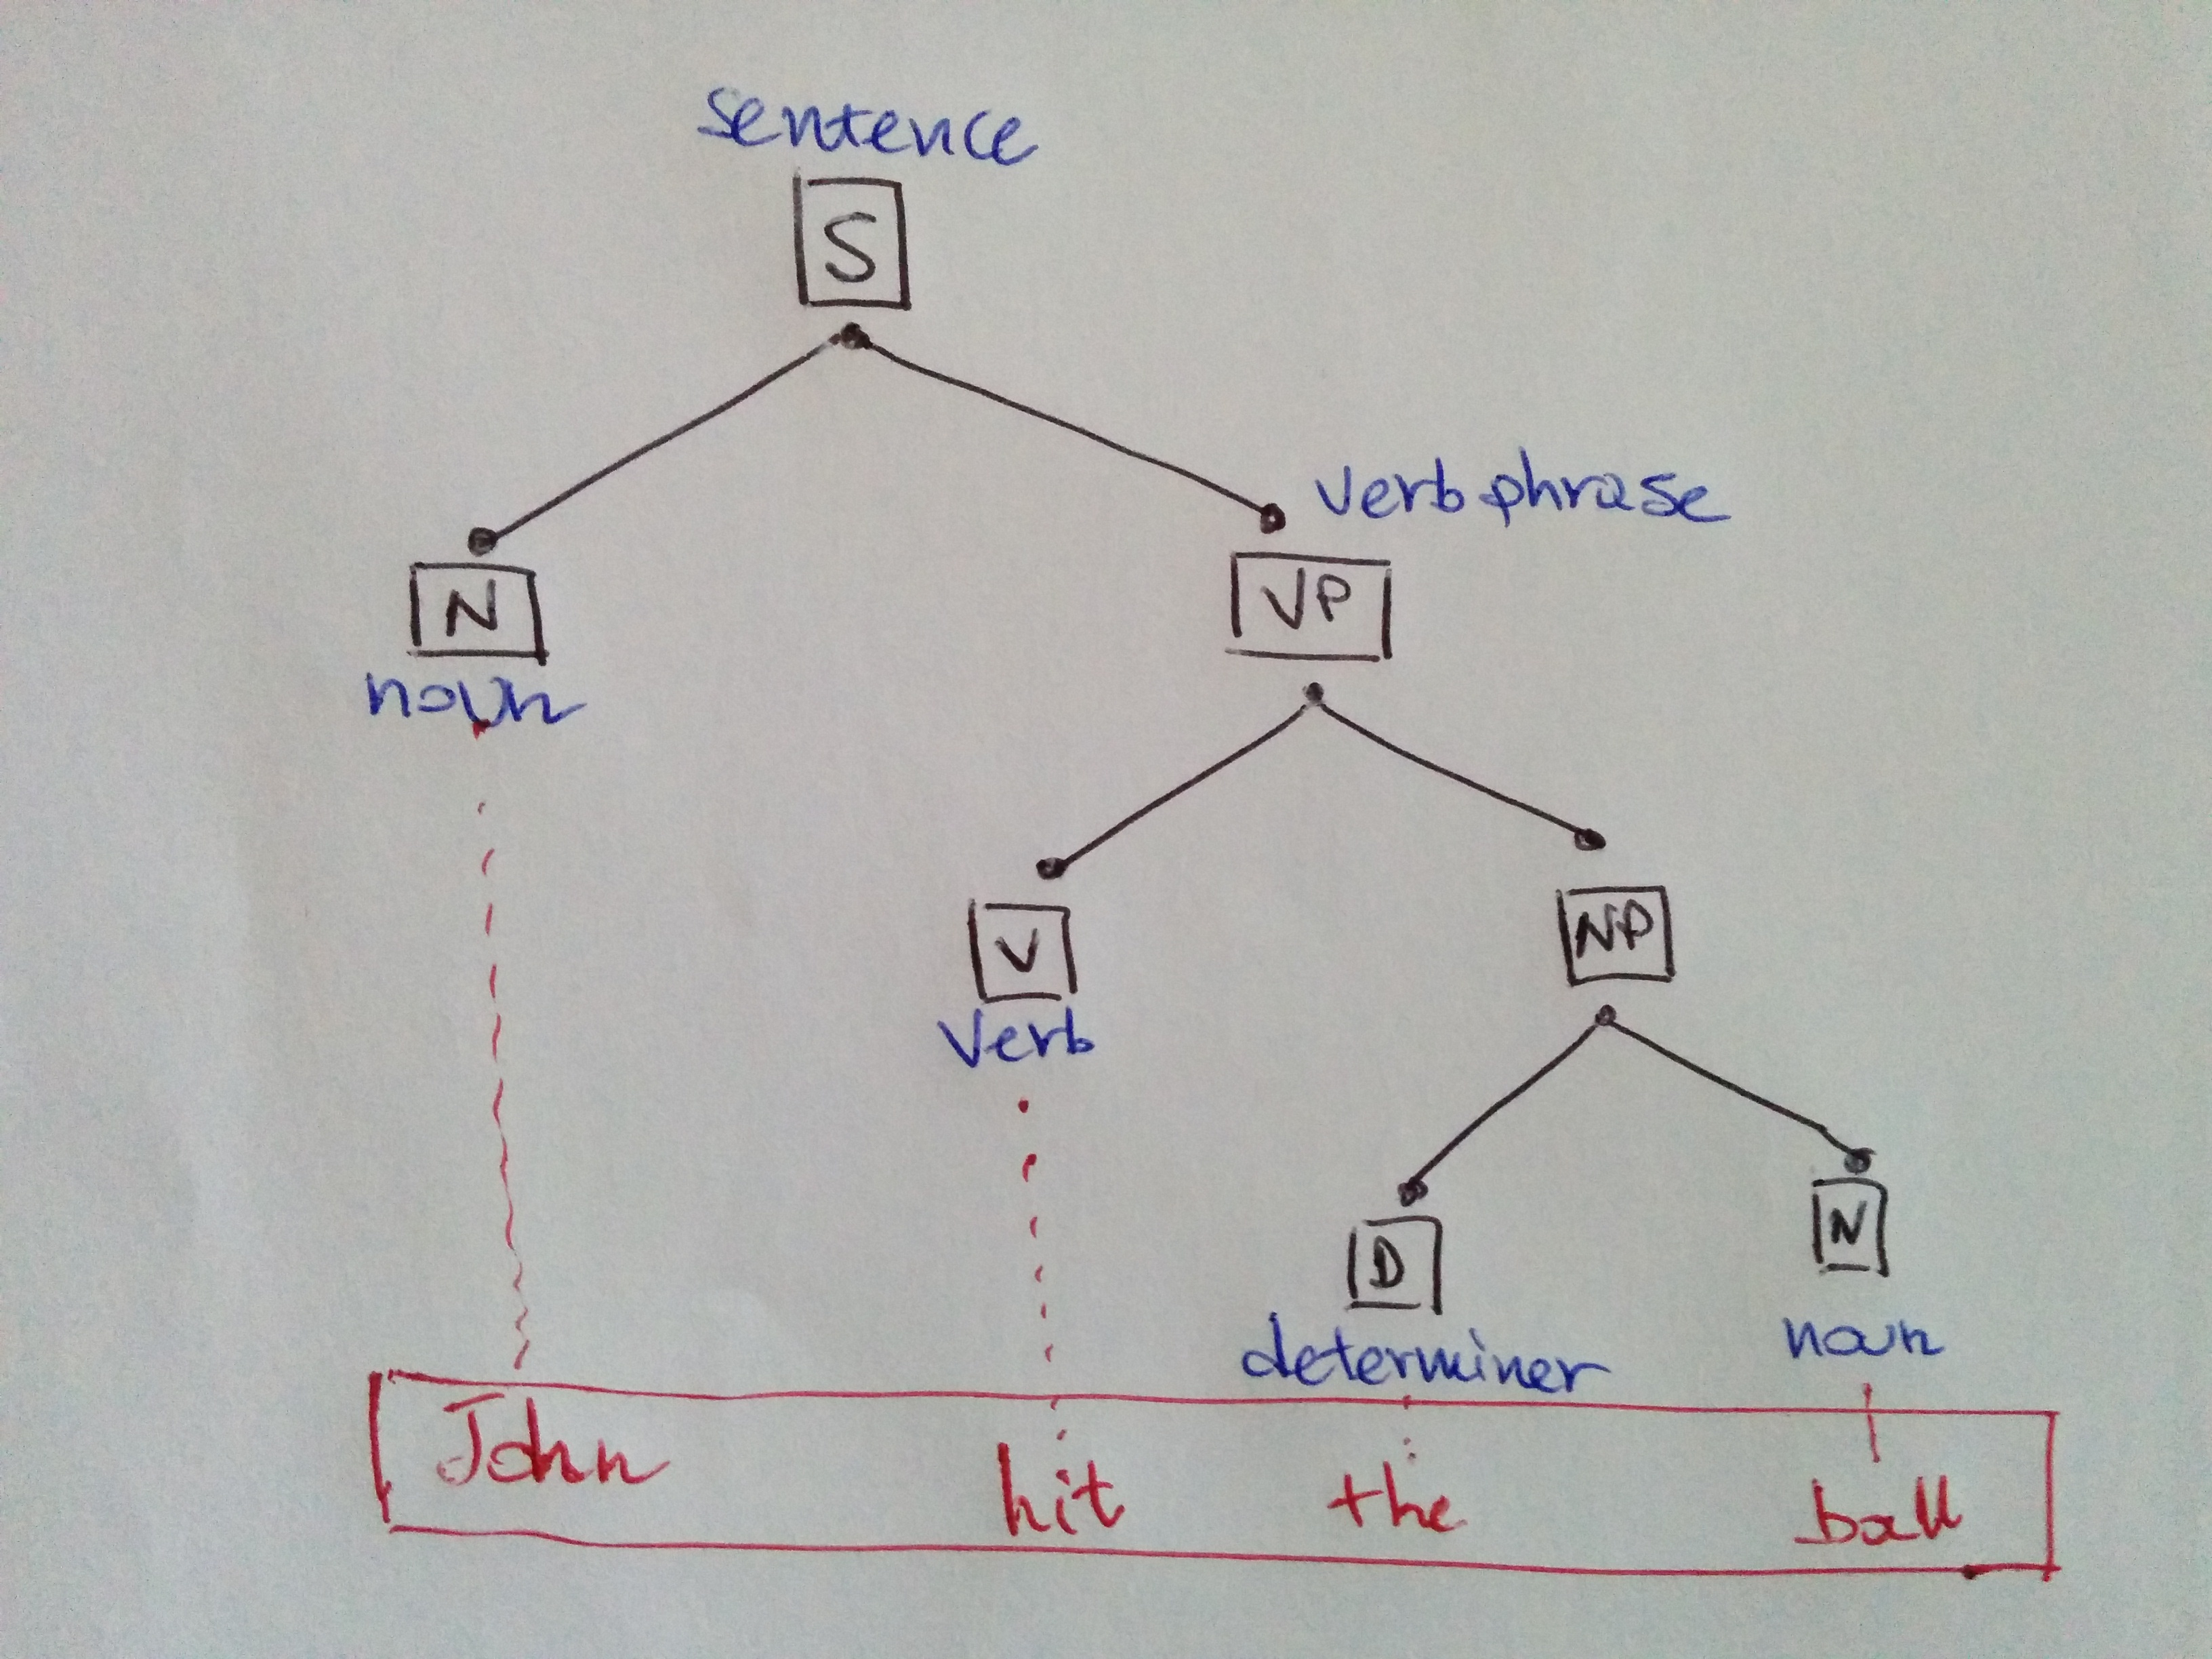 sentence
S
verb phrase
N
VP
noun
V
NP
Verb
D
N
determiner
noun
John hit the ball